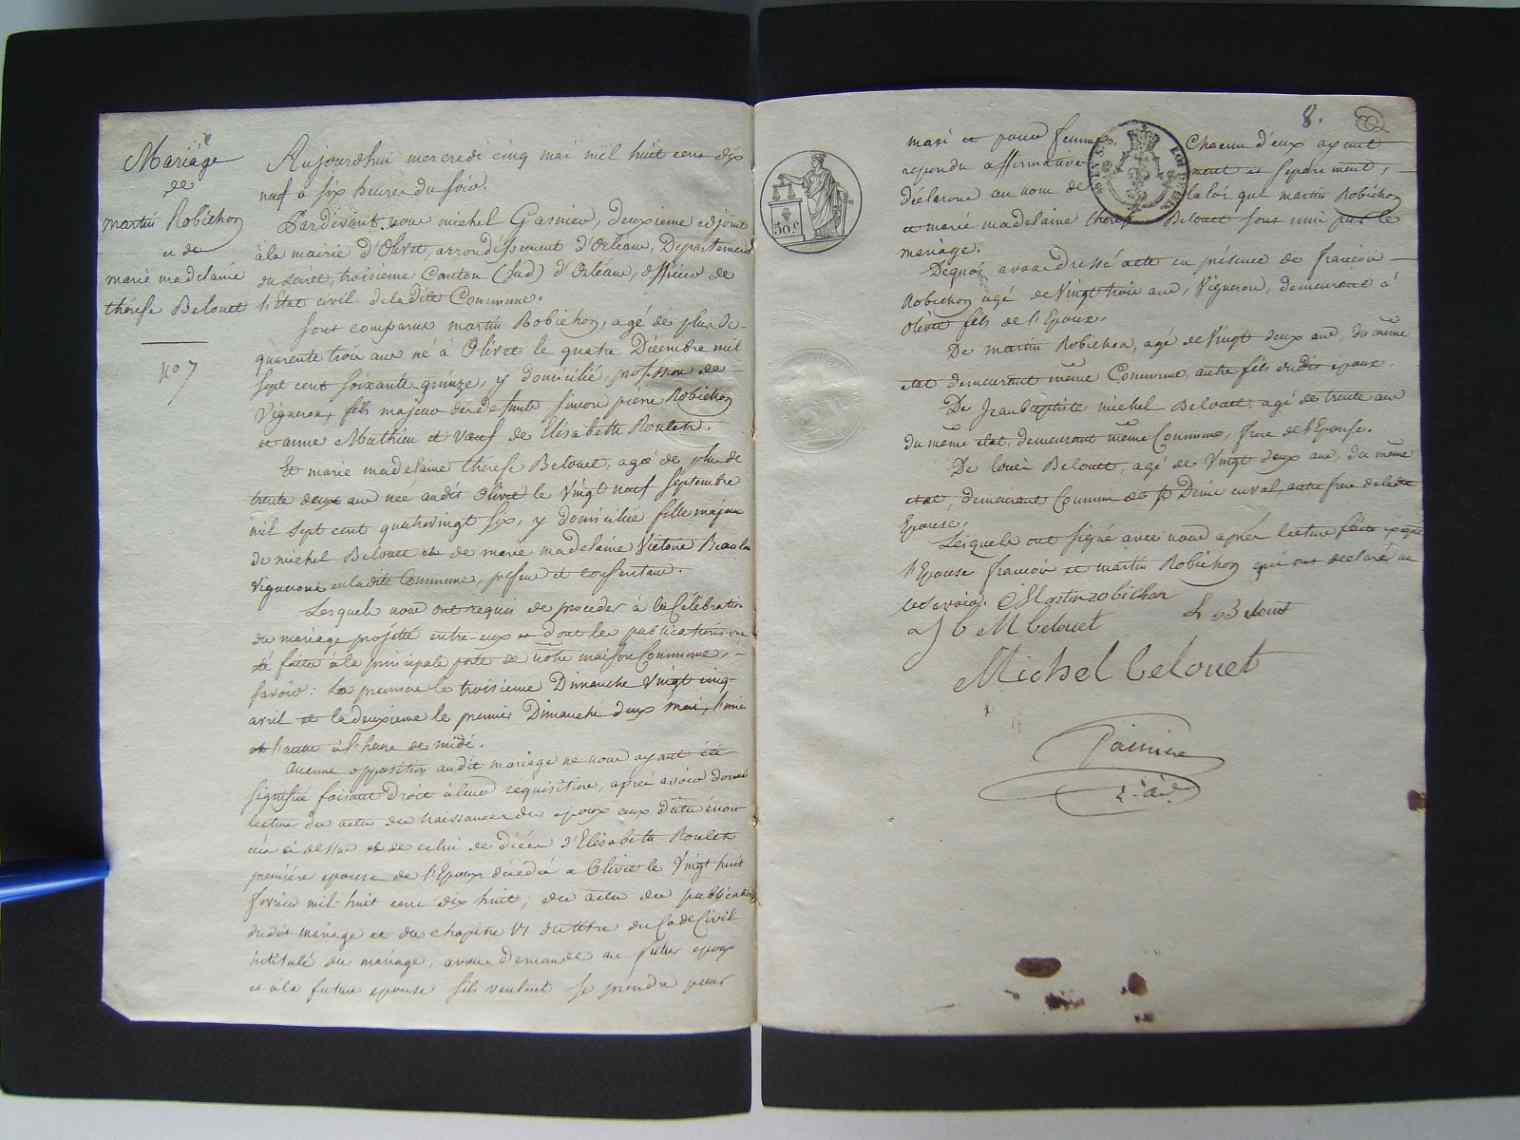 Mariage
de
martin Robichon
et de
marie madelaine
thérese Belouet
No 7
Aujourdhui mercredi cinq mai mil huit cent dix
neuf à six heures du soir.
Pardevant nous michel Garnier, deuxieme adjoint
à la mairie d'Olivet, arrondissement d'Orléans, Departement
du Loiret, troisieme Canton (sud) d'Orléans, officier de
l'Etat civil de ladite Commune.
Sont comparus martin Robichon, agé de plus de
quarente trois ans né à Olivet le quatre Décembre mil
sept cent soixante quinze, y domicilié, profession de
Vigneron, fils majeur de defunts simon pierre Robichon
et anne Mathieu et Veuf de Elisabeth Roulet.
Et marie madelaine thérese Belouet, agée de plus de
trente deux ans née audit Olivet le Vingt neuf septembre
mil sept cent quatrevingt six, y domiciliée fille majeure
de michel Belouet et de marie madelaine Victoire
Vignerons en ladite Commune, présens et consentans.
Lesquels nous ont requis de proceder à la Célébration
du mariage projetté entre eux et dont les publications ont
été faites à la principale porte de notre maison Commune,
savoir: la premiere le troisieme Dimanche Vingt cinq
avril et la deuxieme le premier Dimanche deux mai, l'une
et l'autre à l'heure de midi.
Aucune opposition audit mariage ne nous ayant été
signifiée faisant Droit à leur réquisition, après avoir donné
lecture des actes de Naissances des epoux aux dates énon-
cées ci dessus et de celui de décès d'Elisabeth Roulet
premiere epouse de l'Epoux décédée a Olivet le Vingt huit
février mil huit cent dix huit, des actes des publications
dudit mariage et du chapitre VI du titre du Code Civil
intitulé du mariage, avons demandé au futur epoux
et à la future epouse s'ils veulent se prendre pour
8.
50 c
mari et pour femme Chacun d'eux ayant
repondu affirmativement et séparément,
déclarons au nom de la loi que martin Robichon
et marie madelaine thérese Belouet sont unis par le
mariage.
De quoi avons dressé acte en présence de francois
Robichon agé de Vingt trois ans, Vigneron, demeurant à
Olivet fils de l'Epoux.
De martin Robichon, agé de Vingt deux ans, du même
etat demeurant même Commune, autre fils dudit epoux.
De Jean baptiste michel Belouet, agé de trente ans
du même etat, demeurant même Commune, frere de l'Epouse.
De louis Belouet, agé de Vingt deux ans, du même
etat, demeurant Commune de St Denis en val, autre frere de ladite
Epouse.
Lesquels ont signé avec nous apres lecture faite excepté
l'Epouse francois et martin Robichon qui ont declaré ne
le savoir. Martin robichon
J b M belouet
L Belouet
Michel belouet
Garnier
2e adj